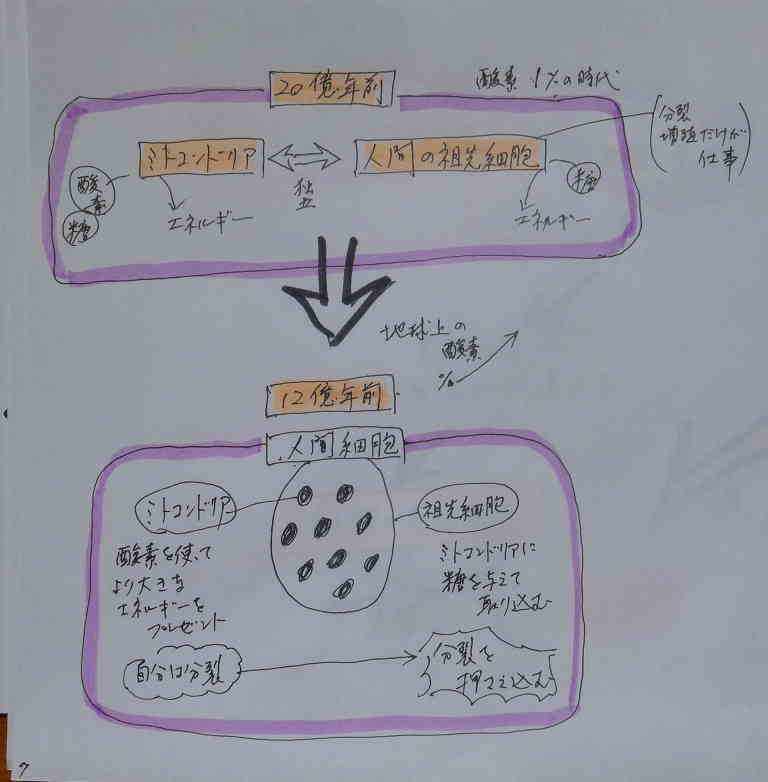 20億年前
酸素 1%の時代
ミトコンドリア
人間の祖先細胞
分裂
増殖だけが
仕事
酸素
糖
独立
糖
エネルギー
エネルギー
地球上の
酸素
%
12億年前
人間細胞
ミトコンドリア
祖先細胞
酸素を使って
より大きな
エネルギーを
プレゼント
ミトコンドリアに
糖を与えて
取り込む
自分は分裂
分裂を
押さえ込む
7